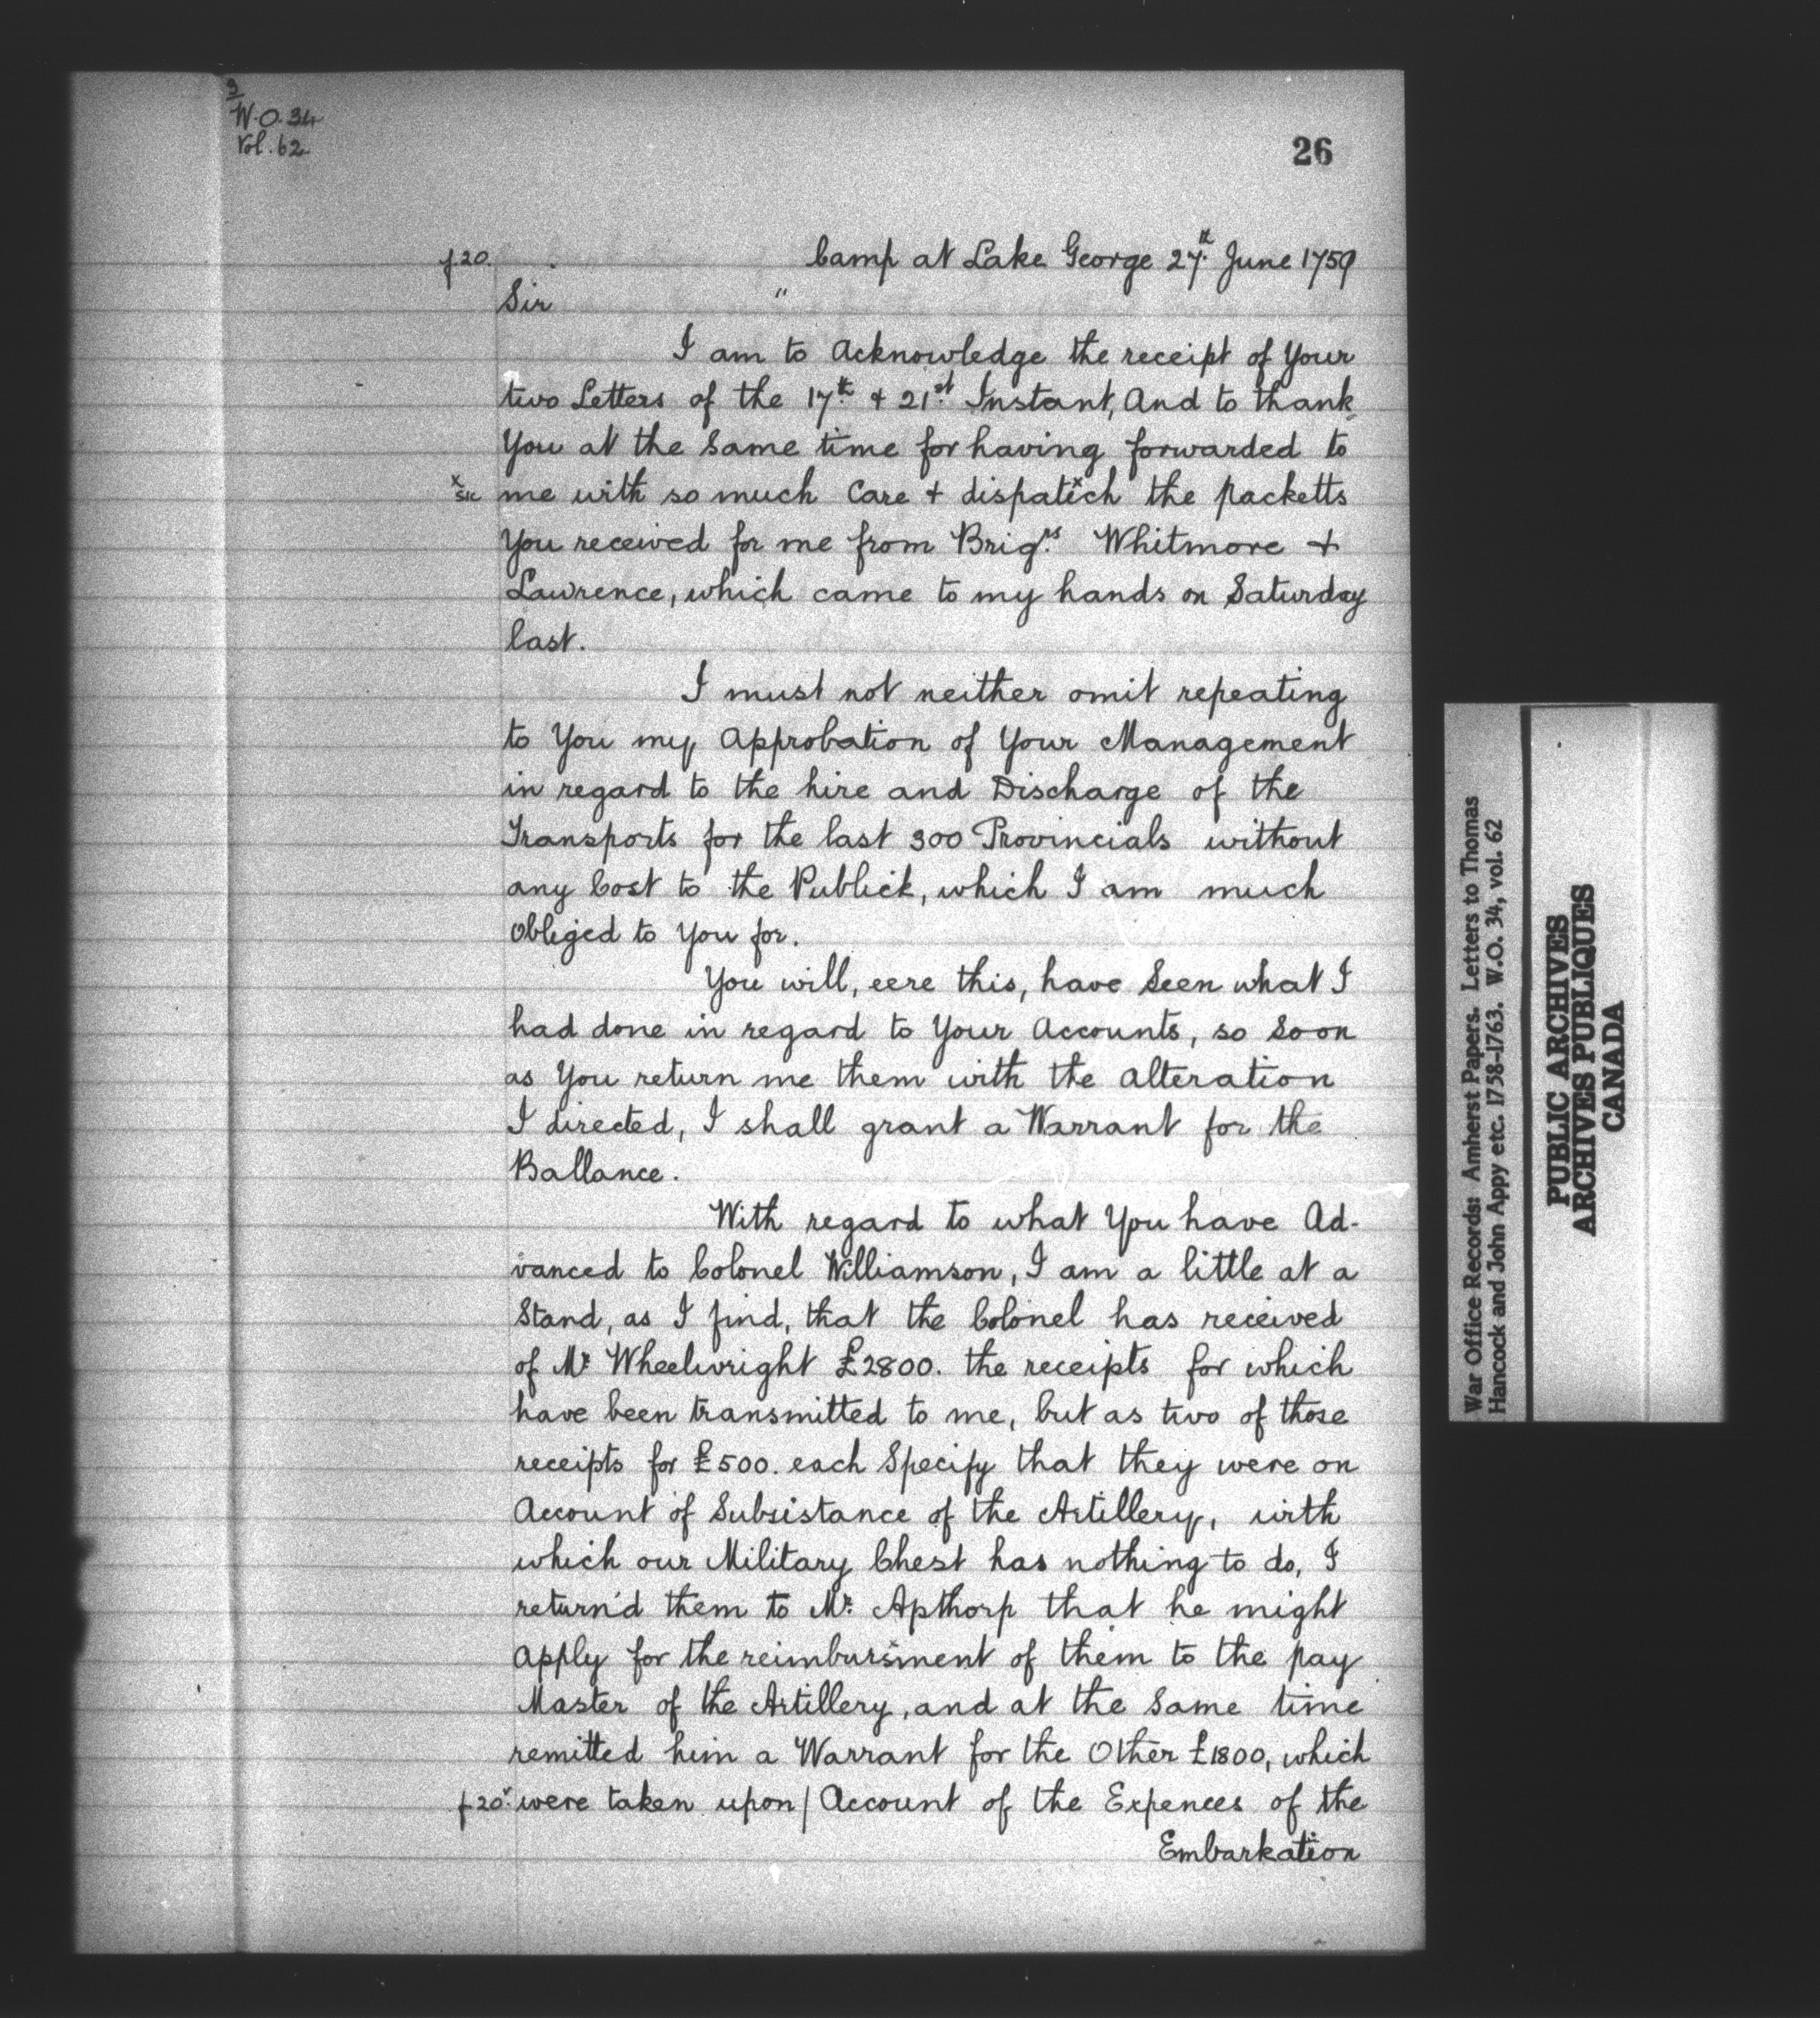 3
W.O. 34
Vol. 62
26
f.20. Camp at Lake George 27th June 1759
Sir "
I am to Acknowledge the receipt of Your
two Letters of the 17th & 21st Instant, And to thank
You at the Same time for having forwarded to
x sic me with so much Care & dispatich x the packetts
You received for me from Brigrs Whitmore &
Lawrence, which came to my hands on Saturday
last.
I must not neither omit repeating
to You my Approbation of Your Management
in regard to the hire and Discharge of the
Transports for the last 300 Provincials without
any Cost to the Publick, which I am much
Obliged to You for.
You will, eere this, have Seen what I
had done in regard to Your Accounts, so Soon
as You return me them with the Alteration
I directed, I shall grant a Warrant for the
Ballance.
With regard to what You have Ad-
vanced to Colonel Williamson, I am a little at a
Stand, as I find, that the Colonel has received
of Mr Wheelwright £2800. the receipts for which
have been transmitted to me, but as two of those
receipts for £500. each Specify that they were on
Account of Subsistance of the Artillery, with
which our Military Chest has nothing to do, I
return'd them to Mr. Apthorp that he might
Apply for the reimbursment of them to the pay
Master of the Artillery, and at the Same time
remitted him a Warrant for the Other £1800, which
f.20v. were taken upon / Account of the Expences of the
Embarkation
War Office Records: Amherst Papers. Letters to Thomas
Hancock and John Appy etc. 1758-1763. W.O. 34, vol. 62
PUBLIC ARCHIVES
ARCHIVES PUBLIQUES
CANADA